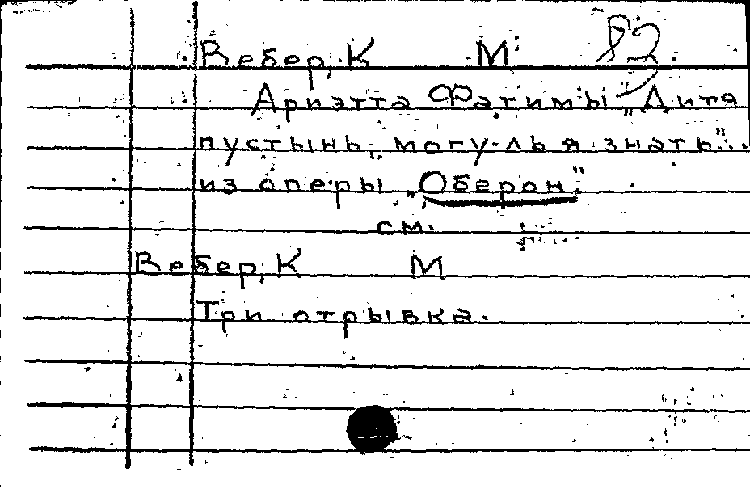 Вебер, К М. 83
Ариэтта Фатимы „Дитя
пустынь, могу-ль я знать"...
из оперы „Оберон".
см.
Вебер, К М
Три отрывка.